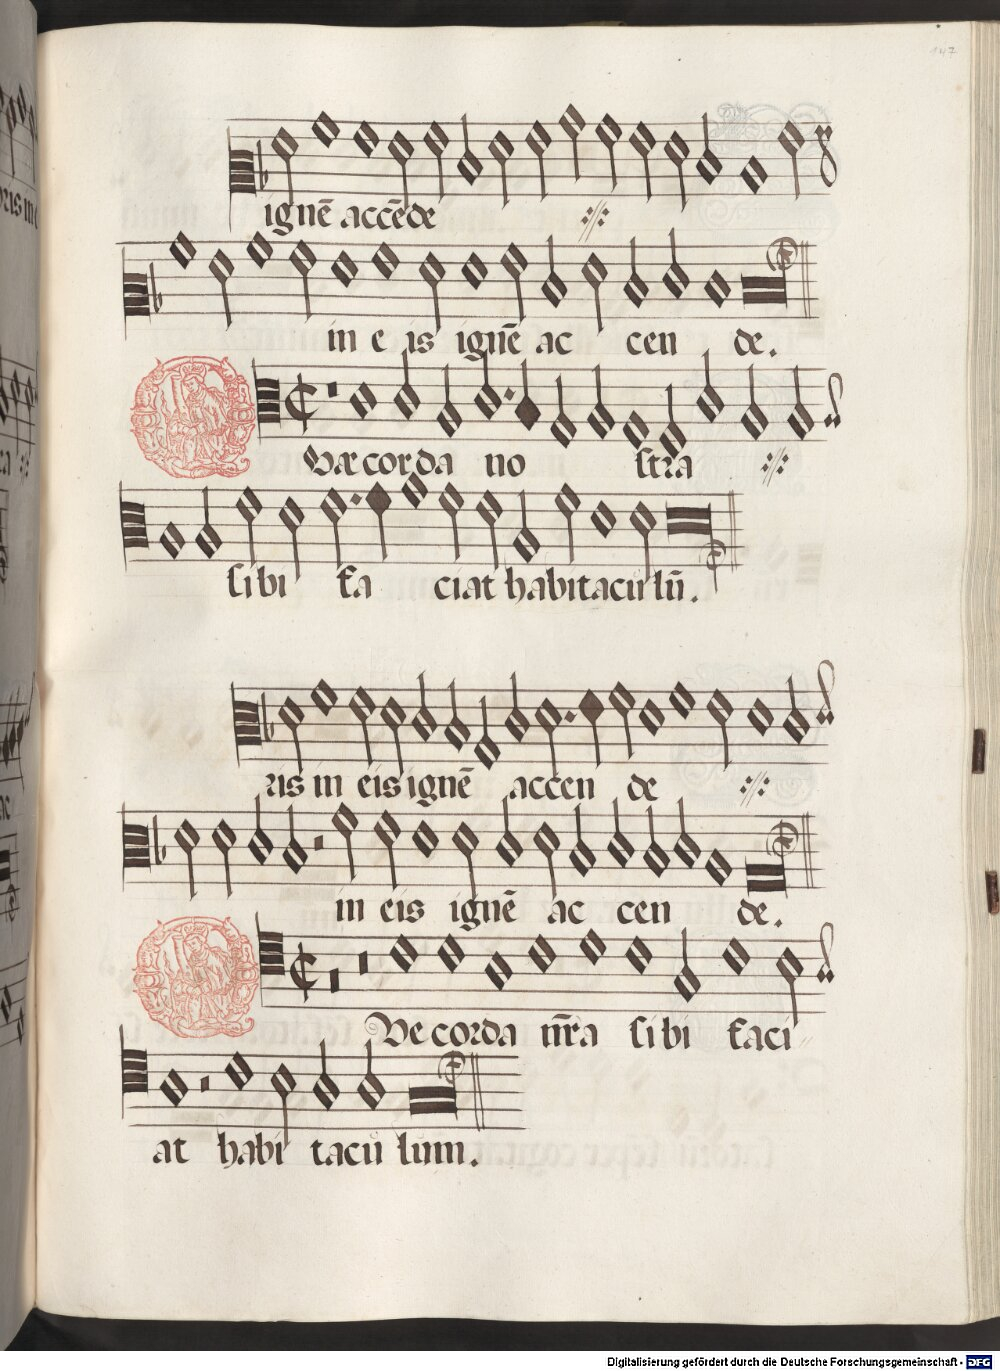 147
ignē accēde
in e is ignē ac cen de.
Quæ corda no stra
sibi fa ciat habitacu lū.
ris in eis ignē accen de
in eis ignē ac cen de.
Quæ corda nr̄a sibi faci
at habi tacu lum.
Digitalisierung gefördert durch die Deutsche Forschungsgemeinschaft - DFG